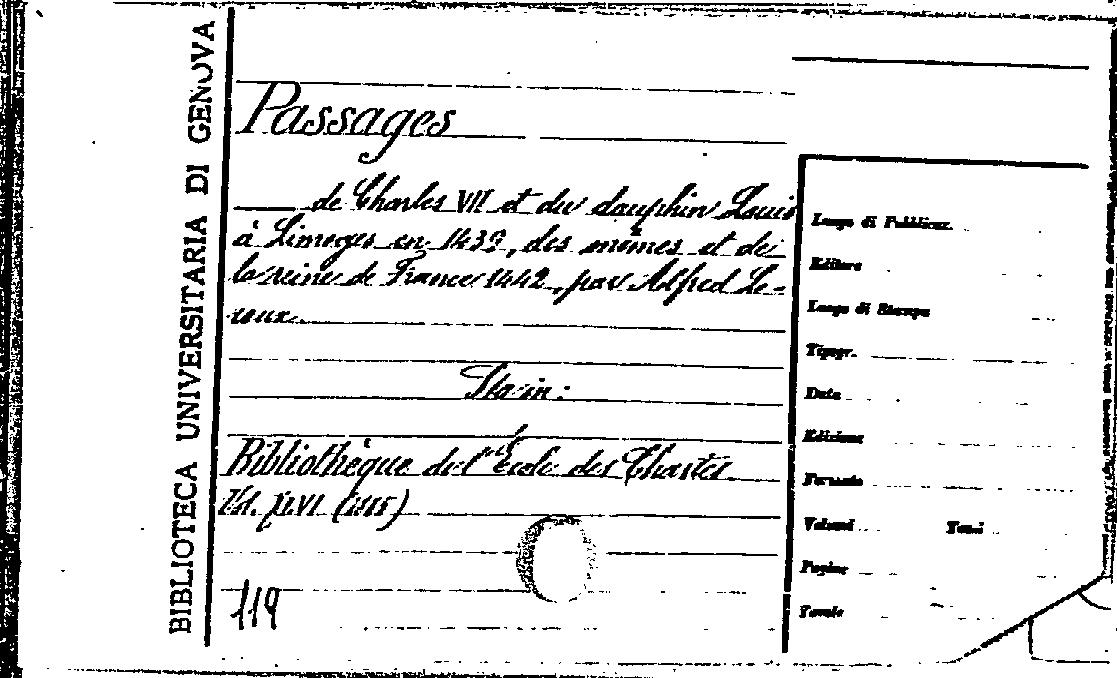 BIBLIOTECA UNIVERSITARIA DI GENOVA
Passages
de Charles VII et du dauphin Louis
à Limoges en 1439, des mêmes et de
la reine de France 1442, par Alfred Le-
roux.
Sta in:
Bibliothèque de l'École des Chartes
Vol. XLVI (1885)
119
Luogo di Pubblicaz.
Editore
Luogo di Stampa
Tipogr.
Data
Edizione
Formato
Volumi Tomi
Pagine
Tavole